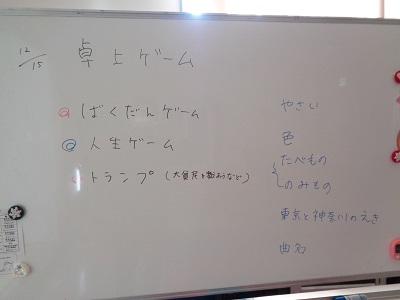 12/15 卓上ゲーム
ばくだんゲーム
人生ゲーム
トランプ(大貧民 など)
やさい
色
たべもの
のみもの
東京と神奈川のえき
曲名